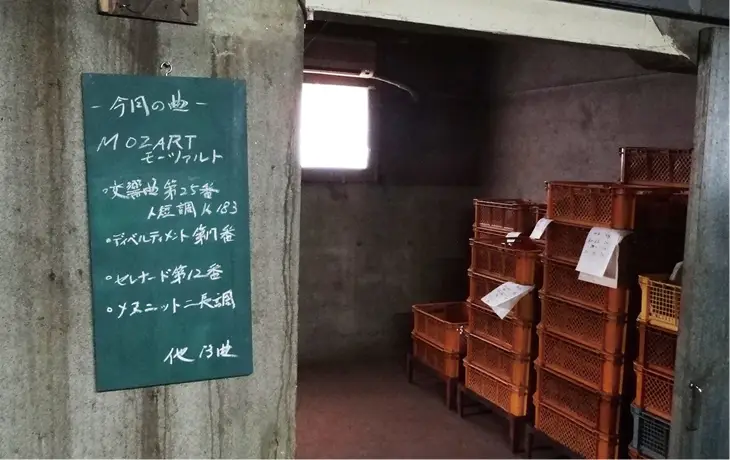 －今月の曲－
MOZART
モーツァルト
・交響曲第25番
ト短調 K183
・ディベルティメント 第17番
・セレナード第12番
・メヌエット ニ長調
他 13曲